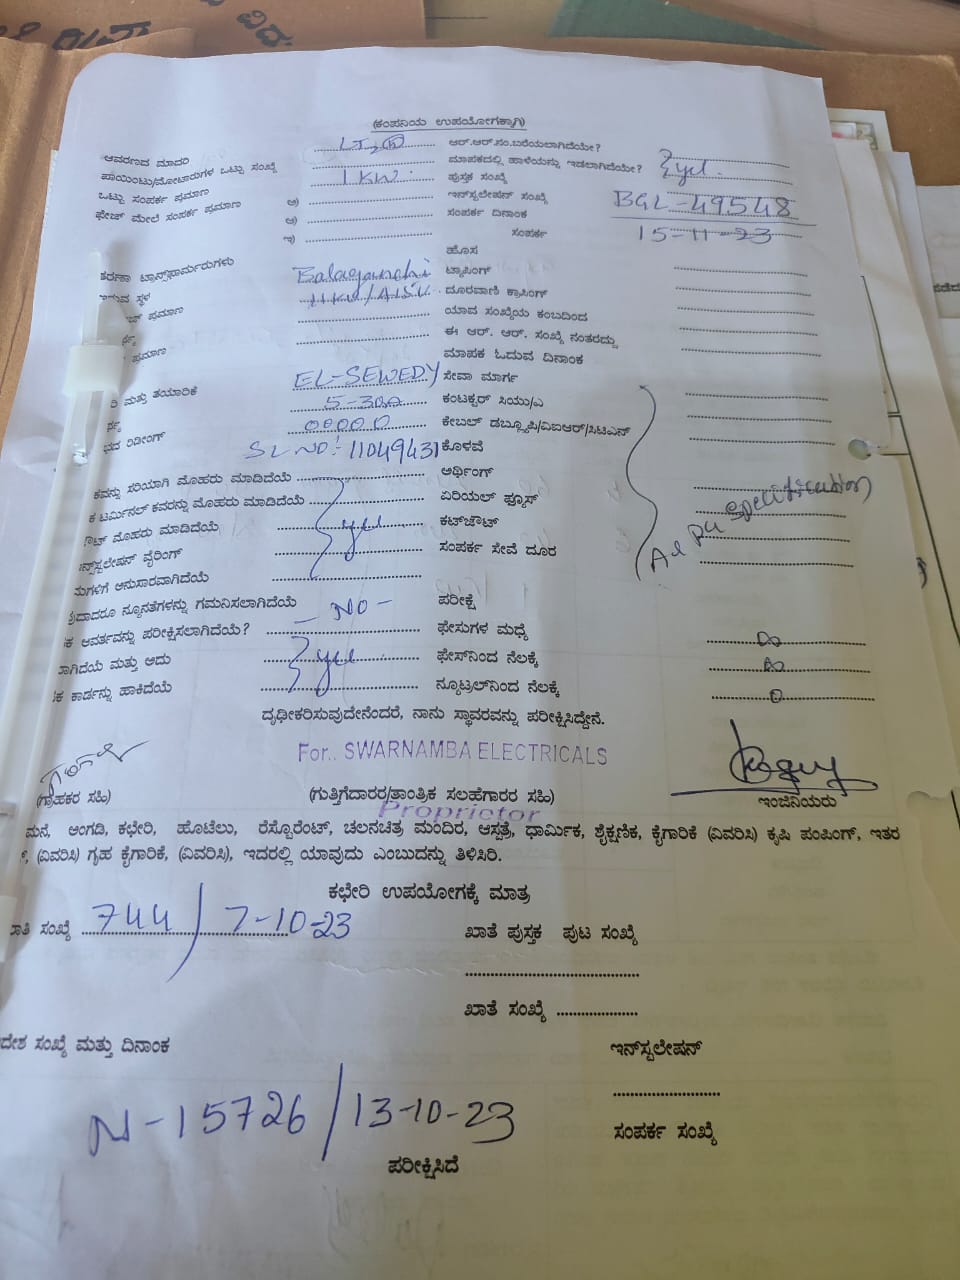 (ಕಂಪನಿಯ ಉಪಯೋಗಕ್ಕಾಗಿ)
ಆವರಣದ ಮಾದರಿ LT2 ಆರ್.ಆರ್.ನಂ.ಬರೆಯಲಾಗಿದೆಯೇ?
ಪಾಯಿಂಟು/ಮೋಟಾರುಗಳ ಒಟ್ಟು ಸಂಖ್ಯೆ ಮಾಪಕದಲ್ಲಿ ಹಾಳೆಯನ್ನು ಇಡಲಾಗಿದೆಯೇ?
ಒಟ್ಟು ಸಂಪರ್ಕ ಪ್ರಮಾಣ 1 KW. ಪುಸ್ತಕ ಸಂಖ್ಯೆ
ಫೇಜ್ ಮೇಲೆ ಸಂಪರ್ಕ ಪ್ರಮಾಣ ಅ) ಇನ್‌ಸ್ಟಲೇಷನ್ ಸಂಖ್ಯೆ BGL-49548
ಆ) ಸಂಪರ್ಕ ದಿನಾಂಕ 15-11-23
ಇ) ಸಂಪರ್ಕ
ಹೊಸ
ಟ್ರಾನ್ಸ್‌ಫಾರ್ಮರುಗಳು ಟ್ಯಾಪಿಂಗ್
ಸ್ಥಳ 11KV/ ದೂರವಾಣಿ ಕ್ರಾಸಿಂಗ್
ಪ್ರಮಾಣ ಯಾವ ಸಂಖ್ಯೆಯ ಕಂಬದಿಂದ
ಈ ಆರ್. ಆರ್. ಸಂಖ್ಯೆ ನಂತರದ್ದು
ಪ್ರಮಾಣ ಮಾಪಕ ಓದುವ ದಿನಾಂಕ
EL-SEWEDY ಸೇವಾ ಮಾರ್ಗ
ಮತ್ತು ತಯಾರಿಕೆ 5-30A ಕಂಟಕ್ಟರ್ ಸಿಯು/ಎ
00000 ಕೇಬಲ್ ಡಬ್ಲ್ಯೂಪಿ/ವಿಐಆರ್/ಸಿಟಿಎಸ್
ರಿಡೀಂಗ್ SL NO: 11049431 ಕೊಳವೆ
ಸರಿಯಾಗಿ ಮೊಹರು ಮಾಡಿದೆಯೆ ಅರ್ಥಿಂಗ್
ಟರ್ಮಿನಲ್ ಕವರನ್ನು ಮೊಹರು ಮಾಡಿದೆಯೆ ಏರಿಯಲ್ ಫ್ಯೂಸ್ As per Specification
ಮೊಹರು ಮಾಡಿದೆಯೆ yes ಕಟ್‌ಔಟ್
ವೈರಿಂಗ್ ಸಂಪರ್ಕ ಸೇವೆ ದೂರ
ಅನುಸಾರವಾಗಿದೆಯೆ
ನ್ಯೂನತೆಗಳನ್ನು ಗಮನಿಸಲಾಗಿದೆಯೆ - NO - ಪರೀಕ್ಷೆ
ಆವರ್ತವನ್ನು ಪರೀಕ್ಷಿಸಲಾಗಿದೆಯೆ? ಫೇಸುಗಳ ಮಧ್ಯೆ ∞
ಮತ್ತು ಅದು yes ಫೇಸ್‌ನಿಂದ ನೆಲಕ್ಕೆ ∞
ಕಾರ್ಡನ್ನು ಹಾಕಿದೆಯೆ ನ್ಯೂಟ್ರಲ್‌ನಿಂದ ನೆಲಕ್ಕೆ 0
ದೃಢೀಕರಿಸುವುದೇನೆಂದರೆ, ನಾನು ಸ್ಥಾವರವನ್ನು ಪರೀಕ್ಷಿಸಿದ್ದೇನೆ.
For.. SWARNAMBA ELECTRICALS
(ಗ್ರಾಹಕರ ಸಹಿ) (ಗುತ್ತಿಗೆದಾರರ/ತಾಂತ್ರಿಕ ಸಲಹೆಗಾರರ ಸಹಿ) ಇಂಜಿನಿಯರು
Proprietor
ಮನೆ, ಅಂಗಡಿ, ಕಛೇರಿ, ಹೊಟೆಲು, ರೆಸ್ಟೊರೆಂಟ್, ಚಲನಚಿತ್ರ ಮಂದಿರ, ಆಸ್ಪತ್ರೆ, ಧಾರ್ಮಿಕ, ಶೈಕ್ಷಣಿಕ, ಕೈಗಾರಿಕೆ (ವಿವರಿಸಿ) ಕೃಷಿ ಪಂಪಿಂಗ್, ಇತರ
(ವಿವರಿಸಿ) ಗೃಹ ಕೈಗಾರಿಕೆ, (ವಿವರಿಸಿ), ಇದರಲ್ಲಿ ಯಾವುದು ಎಂಬುದನ್ನು ತಿಳಿಸಿರಿ.
ಕಛೇರಿ ಉಪಯೋಗಕ್ಕೆ ಮಾತ್ರ
ಸಂಖ್ಯೆ 744 / 7-10-23 ಖಾತೆ ಪುಸ್ತಕ ಪುಟ ಸಂಖ್ಯೆ
ಖಾತೆ ಸಂಖ್ಯೆ
ಸಂಖ್ಯೆ ಮತ್ತು ದಿನಾಂಕ ಇನ್‌ಸ್ಟಲೇಷನ್
N-15726 / 13-10-23 ಸಂಪರ್ಕ ಸಂಖ್ಯೆ
ಪರೀಕ್ಷಿಸಿದೆ